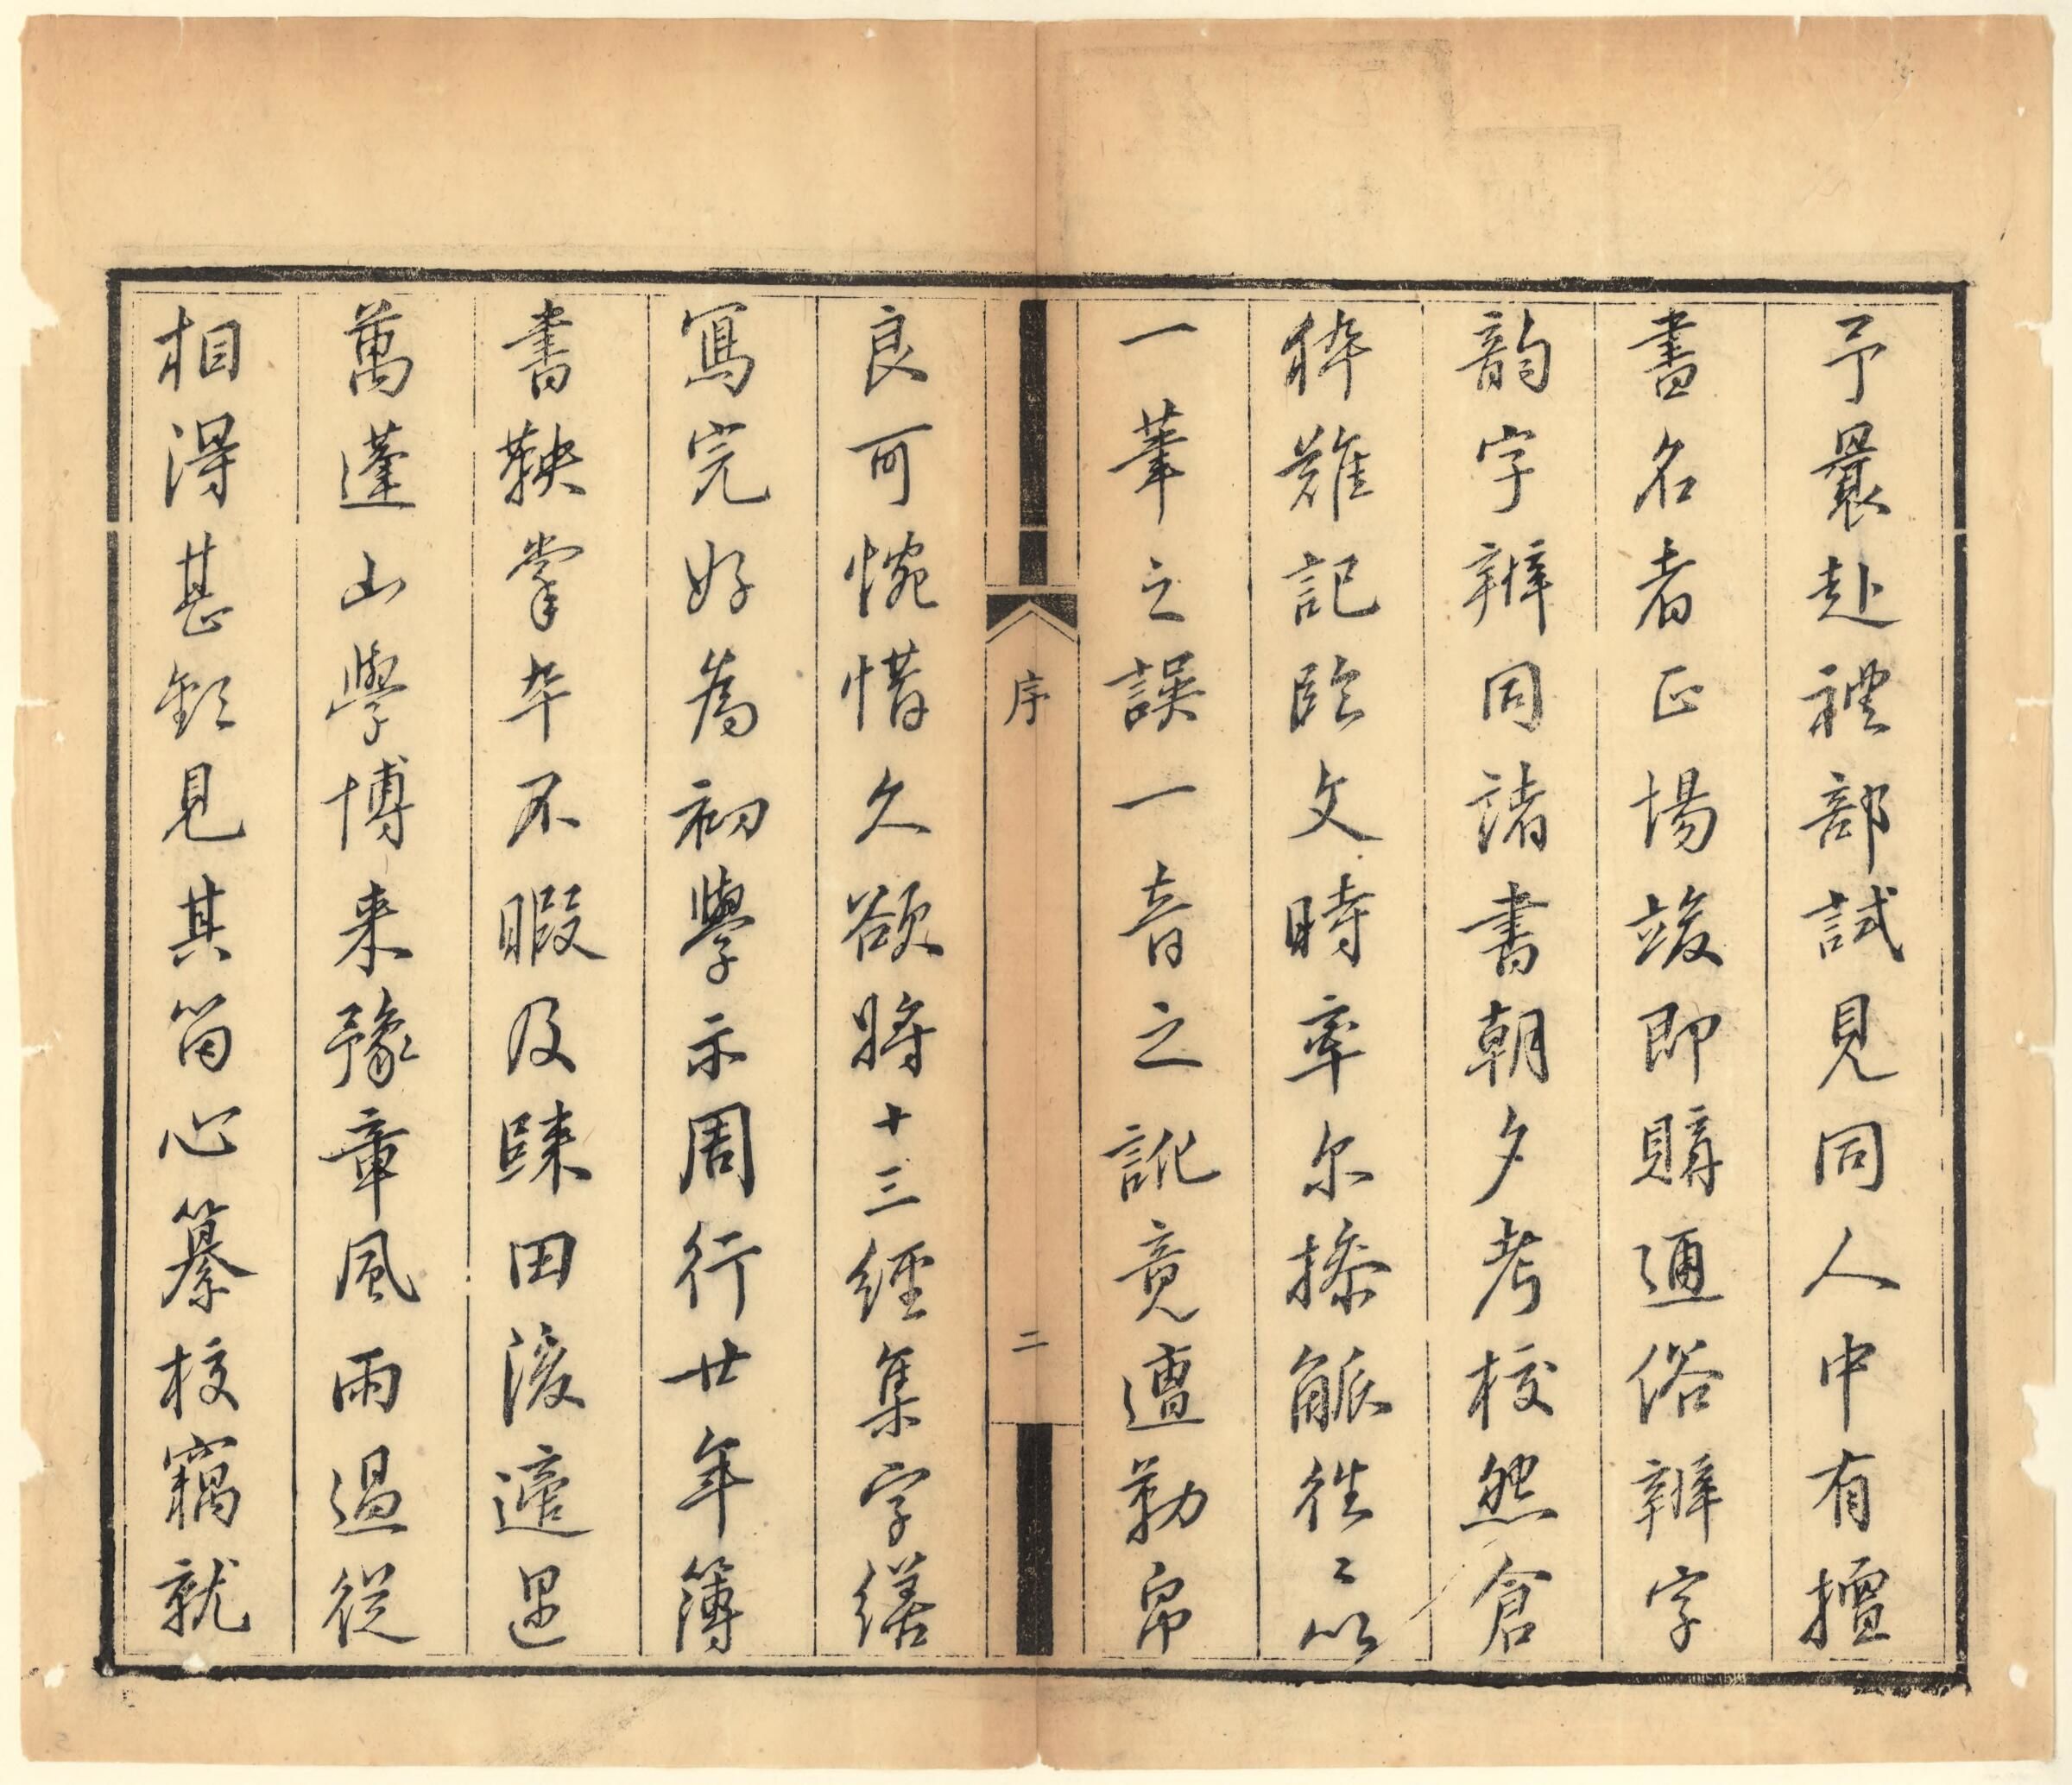 予曩赴禮部試見同人中有擅
書名者正場竣即購通俗辨字
韵字辨同諸書朝夕考校然倉
猝難記臨文時率尔捺觚往〻以
一筆之誤一音之訛竟遭勒帛
序
二
良可惋惜久欲將十三經集字繕
寫完好為初學示周行廿年簿
書鞅掌卒不暇及歸田後適遇
萬蓬山學博来豫章風雨過從
相淂甚歡見其留心纂校竊就